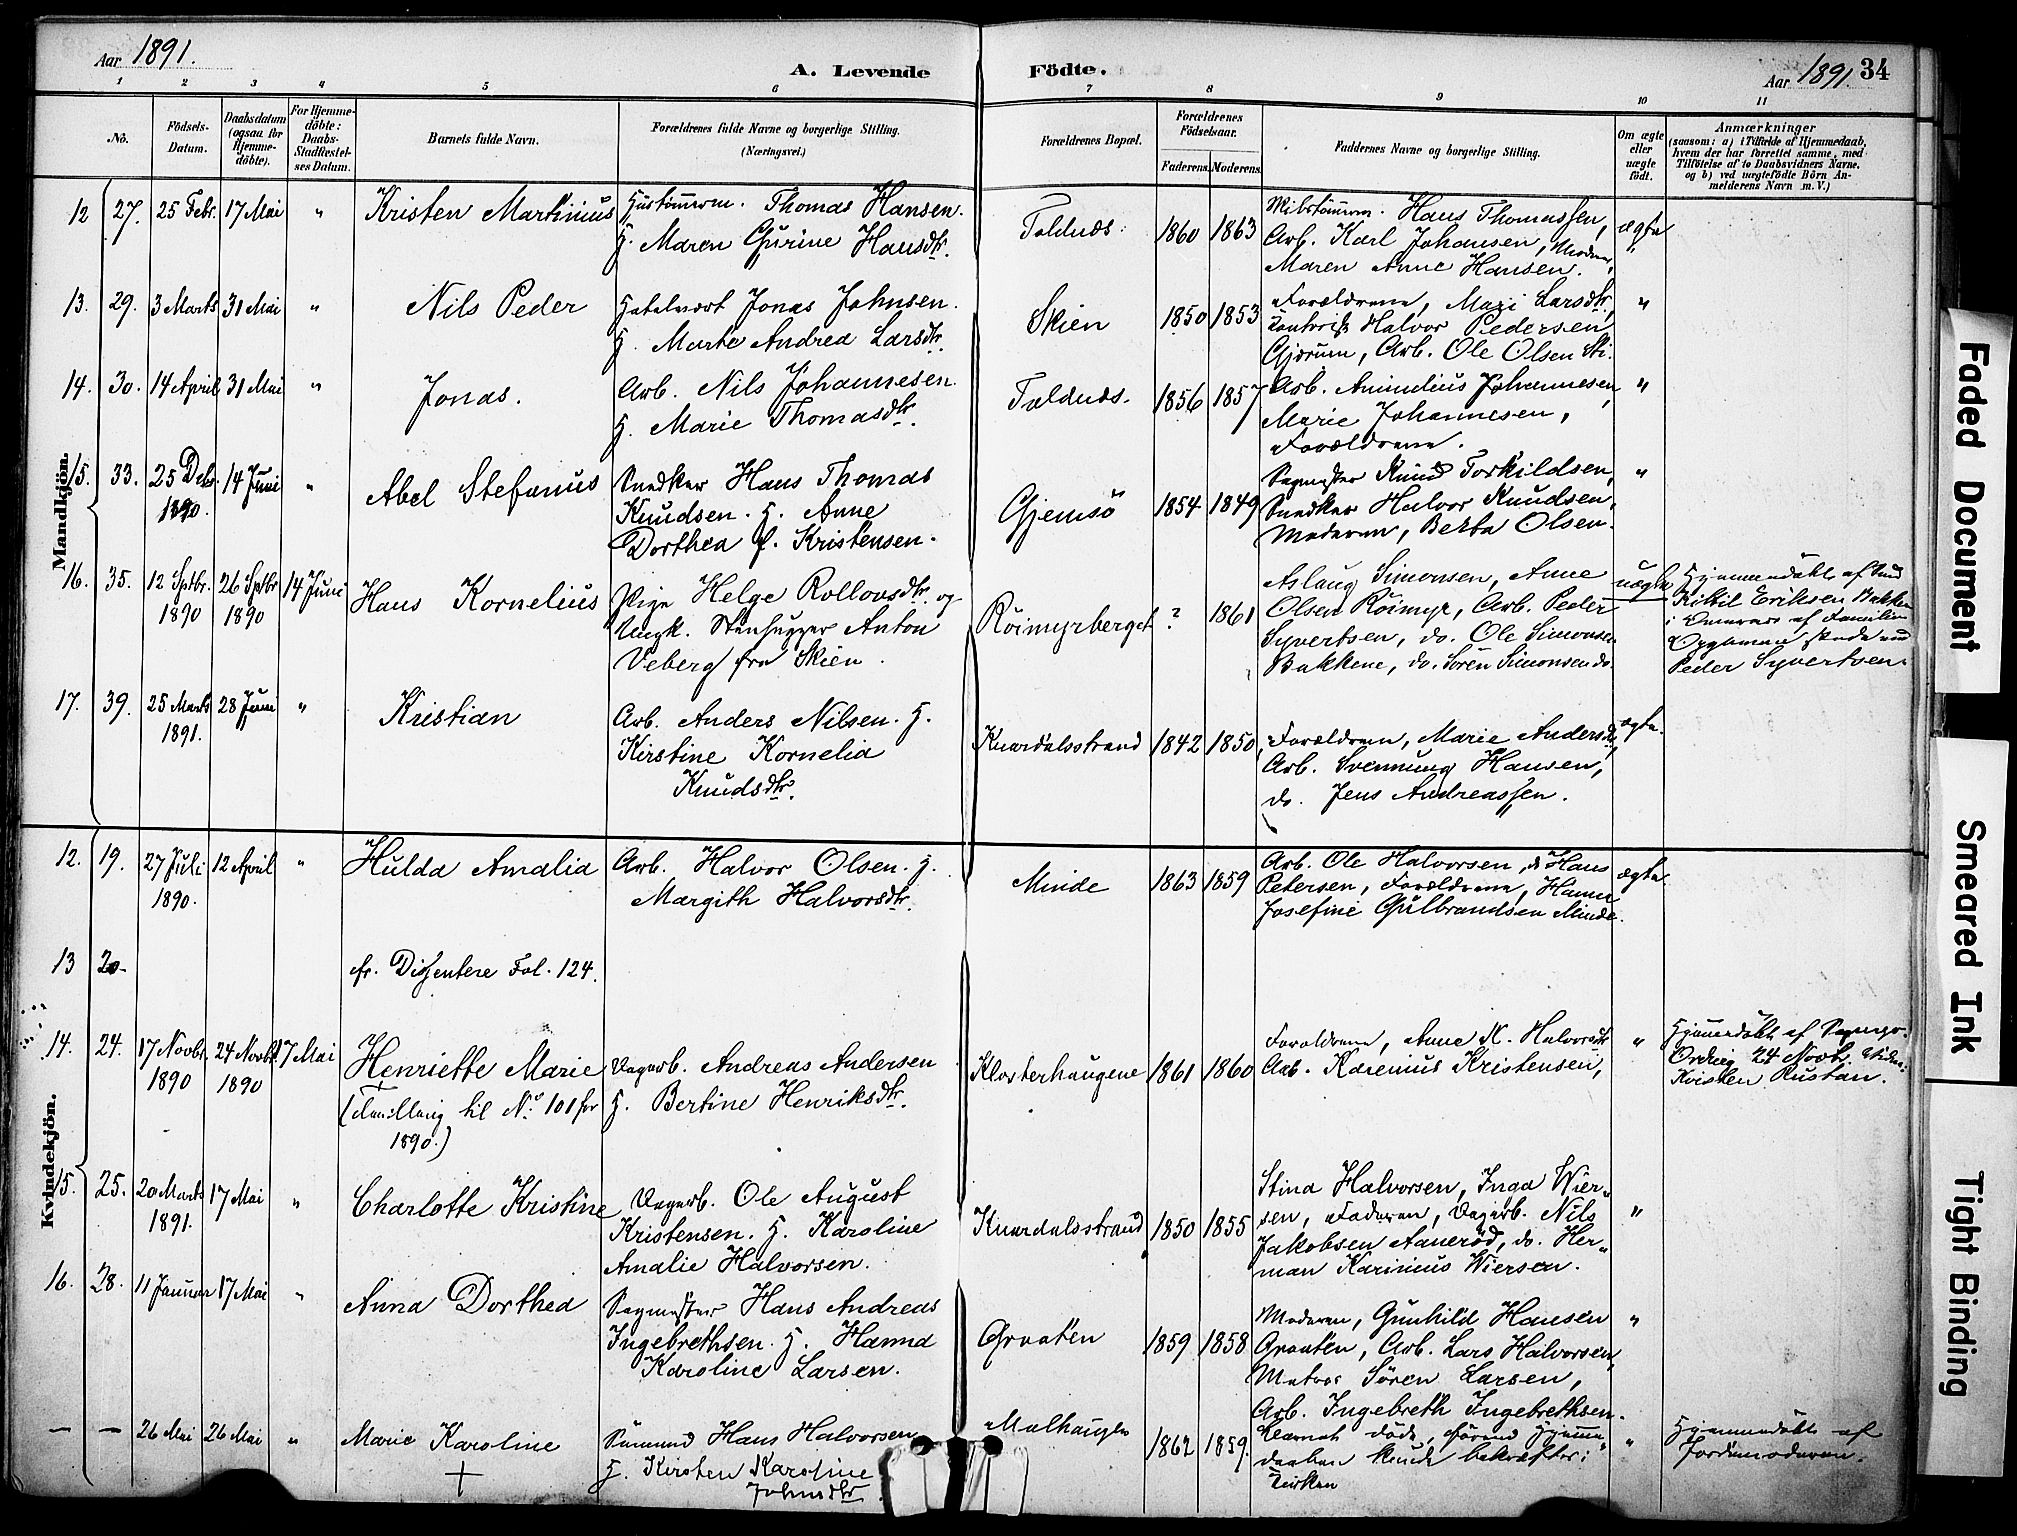 Aar 1891.
A. Levende Födte.
Aar 1891. 34
1 2 3 4 5 6 7 8 9 10 11
No.
Födsels-Datum.
Daabsdatum (ogsaa for Hjemme-döbte).
For Hjemme-döbte: Daabs-Stadfæstel-ses Datum.
Barnets fulde Navn.
Forældrenes fulde Navne og borgerlige Stilling.
(Næringsvei.)
Forældrenes Bopæl.
Forældrenes Födselsaar.
Faderens. Moderens.
Faddernes Navne og borgerlige Stilling.
Om ægte eller uægte födt.
Anmærkninger
(saasom: a) i Tilfælde af Hjemmedaab, hvem der har forrettet samme, med Tilföielse af to Daabsvidners Navne. og b) ved uægtefödte Börn An-melderens Navn m. V.)
Mandkjön.
12 27. 25 Febr. 17 Mai " Kristen Martinius
Thomas Hansen.
H. Maren Gurine Hansdtr.
1860 1863
Hans Thomassen,
Arb. Karl Johansen,
Maren Anne Hansen.
ægte
13. 29. 3 Marts 31 Mai " Nils Peder
Jonas Johnsen.
H. Marte Andrea Larsdtr.
Skien 1850 1853
Forældrene, Mari Larsdtr,
Halvor Pedersen
Gjerum, Arb. Ole Olsen
"
14. 30. 14 April 31 Mai " Jonas.
Arb. Nils Johannesen.
H. Marie Thomasdtr.
1856 1857
Arb. Johannesen,
Marie Johannesen,
Forældrene.
"
15. 33. 25 Debr. 1890. 14 Juni " Abel Stefanus
Snedker Hans Thomas
Knudsen. H. Anne
Dorthea f. Kristensen.
Gjemsö 1854 1849
Sagmester Knud Torkildsen,
Snedker Halvor Knudsen,
Moderen, Berta Olsen.
"
16. 35. 12 Sptbr. 1890 26 Sptbr 1890 14 Juni Hans Kornelius
Pige Helge Rollovsdtr. og
Ungk. Stenhugger Anton
Veberg fra Skien.
Röimyrberget ? 1861
Aslaug Simonsen, Anne
Olsen Röimyr, Arb. Peder
Syvertsen, do. Ole Simonsen
Bakkene, do. Sören Simonsen do.
uægte
Hjemmedöbt af
Kittil Eriksen Bakken
Peder Syvertsen.
17. 39. 25 Marts 1891. 28 Juni " Kristian
Arb. Anders Nilsen. H.
Kirstine Kornelia
Knudsdtr.
Knardalsstrand 1842 1850
Forældrene, Marie Andersdtr,
Arb. Svennung Hansen,
do. Jens Andreassen.
ægte.
Kvindekjön.
12. 19. 27 Juli 1890. 12 April " Hulda Amalia
Arb. Halvor Olsen. H.
Margith Halvorsdtr.
Minde 1863 1859
Arb. Ole Halvorsen, do Hans
Petersen, Forældrene, Hanna
Josefine Gulbrandsen Minde.
ægte
13 20. fr. Dissentere Fol. 124.
14. 24. 17 Novbr. 1890 24 Novbr. 1890 17 Mai Henriette Marie
til No 101 for
1890.)
Andreas Andersen
H. Bertine Henriksdtr.
Klosterhaugene 1861 1860
Forældrene, Anne M. Halvorsdtr
Arb. Karenius Kristensen,
"
Hjemmedöbt af
24 Novb.
Kristen Rustan.
15. 25. 20 Marts 1891. 17 Mai " Charlotte Kristine
Ole August
Kristensen. H. Karoline
Amalie Halvorsen.
Knardalsstrand 1850 1855
Stina Halvorsen, Inga Wier-
sen, Faderen, Nils
Jakobsen Aaneröd, do. Her-
man Karinius Wiersen.
"
16. 28. 11 Januar 17 Mai " Anna Dorthea
Sagmester Hans Andreas
Ingebrethsen. H. Hanna
Karoline Larsen.
Graaten 1859 1858
Moderen, Gunhild Hansen
Graaten, Arb. Lars Halvorsen,
Matros Sören Larsen,
Arb. Ingebreth Ingebrethsen.
"
— — 26 Mai 26 Mai " Marie Karoline
+
Sömand Hans Halvorsen
H. Kirsten Karoline
Johnsdtr
1862 1859.
Barnet döde, förend Hjemme-
daaben kunde bekræftes i
Kirken
"
Hjemmedöbt af
Jordemoderen.
Faded Document
Smeared Ink
Tight Binding